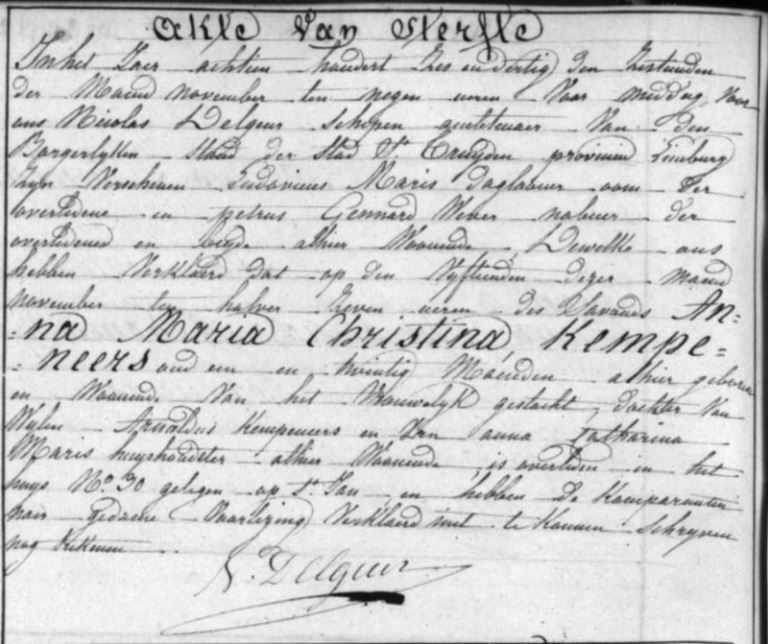 Akte Van Sterfte
In het Jaer achtien hondert Zes en dertig den Zestienden
der Maend November ten negen uren Voor middag, Voor
ons Nicolas Delgeur Schepen Van den
Borgerlyken Stand der Stad St Truyden provincie Limburg
Zyn Verschenen Ludovicus Maris daglooner oom der
overledene en petrus Gennard Wever nabuer der
overledene en beyde alhier Woonende, Dewelke ons
hebben Verklaerd dat op den Vyftienden dezer maend
november ten halver Zeven uren des S'avonds An=
=na Maria Christina Kempe=
=neers oud een en twintig Maenden alhier geboren
en Woonende Van het Vrouwelyk geslacht, dochter Van
Wylen Arnoldus Kempeneers en Van anna Catharina
Maris huyshoudster alhier Woonende, is overleden in het
huys No 30 gelegen op St Jan en hebben de Komparanten
naer gedaene Voorlezing Verklaerd niet te Konnen Schryven
nog tekenen.
N. Delgeur